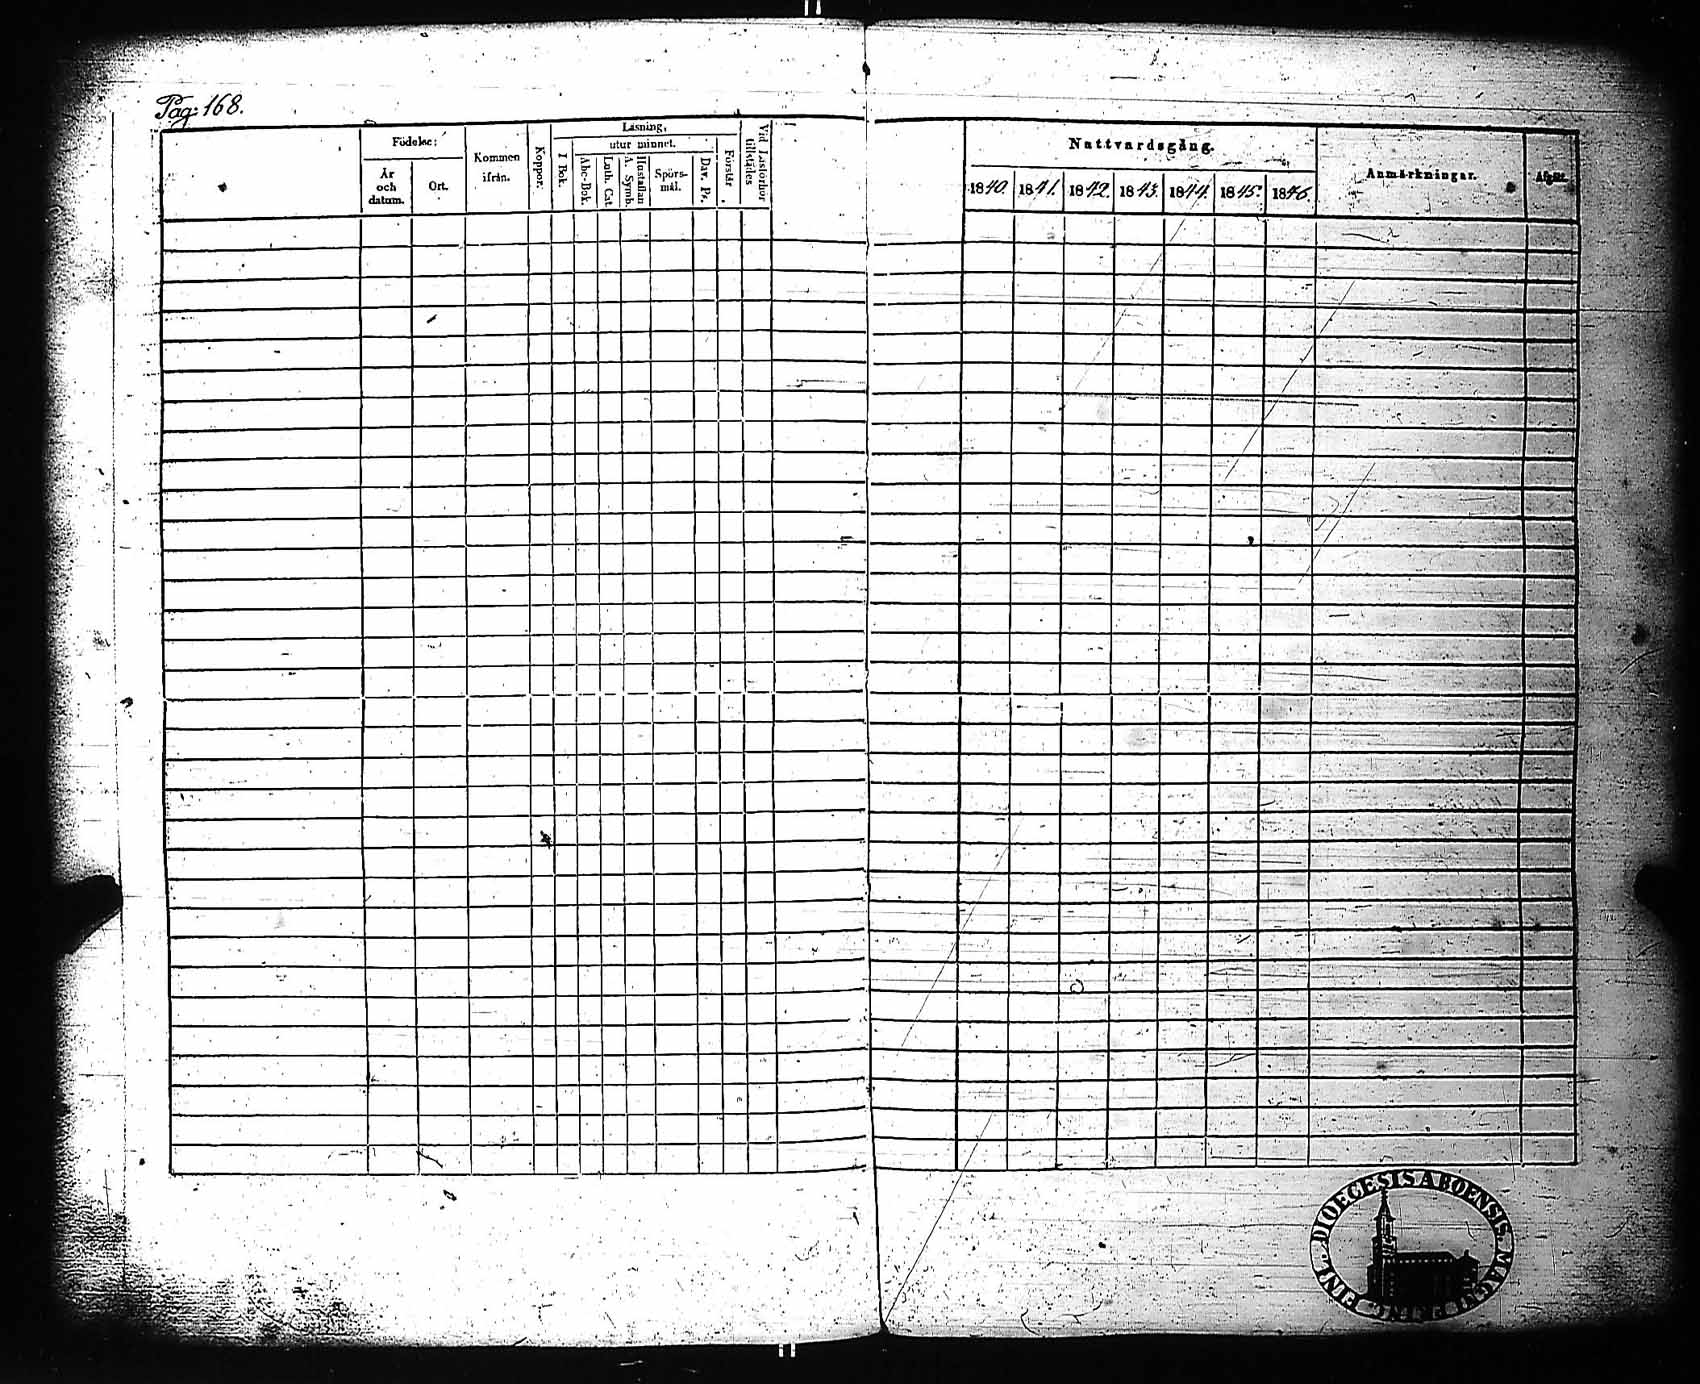 Pag: 168.
Födelse:
År
och
datum.
Ort.
Kommen
ifrån.
Koppor.
Läsning,
I Bok.
utur minnet.
Abc-Bok.
Luth. Cat.
Hustaflan
A. Symb.
Spörs-
mål.
Dav. Ps.
Förstår
Vid Läsförhör
tillstädes
Nattvardsgång.
1840. 1841. 1842. 1843. 1844. 1845. 1846.
Anmärkningar.
Afgått.
DIOECESIS ABOENSIS MAGNI FINL.